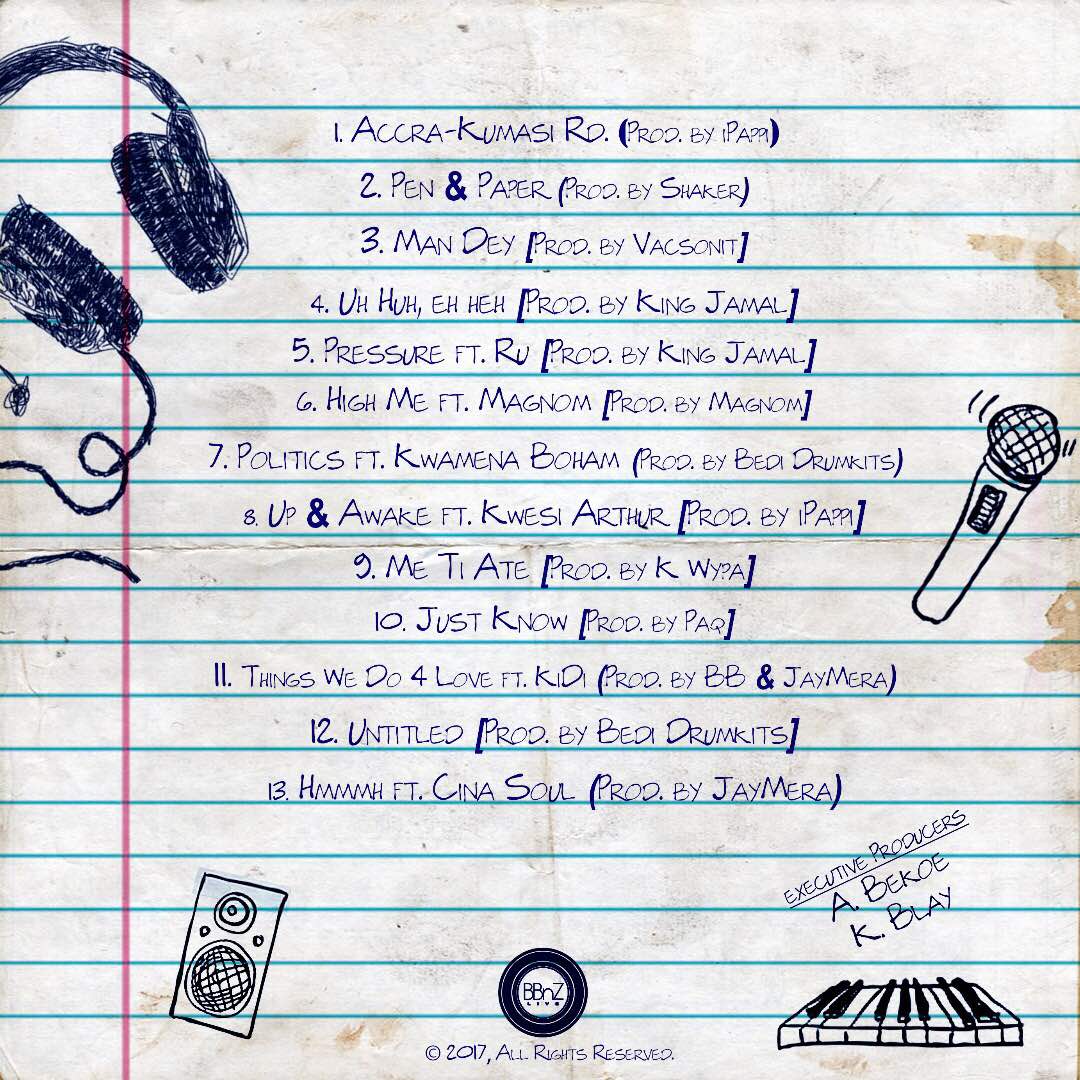 1. Accra-Kumasi Rd. (Prod. by iPappi)
2. Pen & Paper (Prod. by Shaker)
3. Man Dey [Prod. by Vacsonit]
4. Uh Huh, eh heh [Prod. by King Jamal]
5. Pressure ft. Ru [Prod. by King Jamal]
6. High Me ft. Magnom [Prod. by Magnom]
7. Politics ft. Kwamena Boham (Prod. by Bedi Drumkits)
8. Up & Awake ft. Kwesi Arthur [Prod. by iPappi]
9. Me Ti Ate [Prod. by K Wypa]
10. Just Know [Prod. by Paq]
11. Things We Do 4 Love ft. KiDi (Prod. by BB & JayMera)
12. Untitled [Prod. by Bedi Drumkits]
13. Hmmmh ft. Cina Soul (Prod. by JayMera)
Executive Producers
A. Bekoe
K. Blay
BBnZ
LIVE
© 2017, All Rights Reserved.